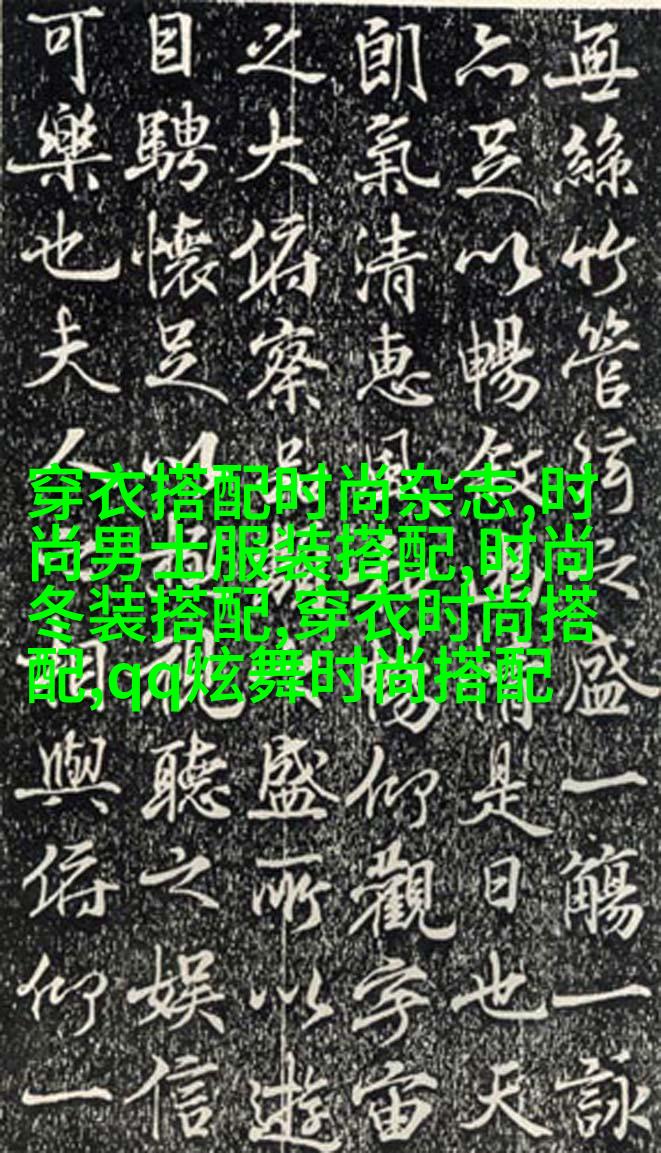 無絲竹管絃之盛一觴一詠
亦足以暢敘情是日也天
朗氣清惠風暢仰觀宇宙
之大俯察品盛所以遊
目騁懷足以視聽之娛信
可樂也夫人相與俯仰一
穿衣搭配时尚杂志,时
尚男士服装搭配,时尚
冬装搭配,穿衣时尚搭
配,qq炫舞时尚搭配